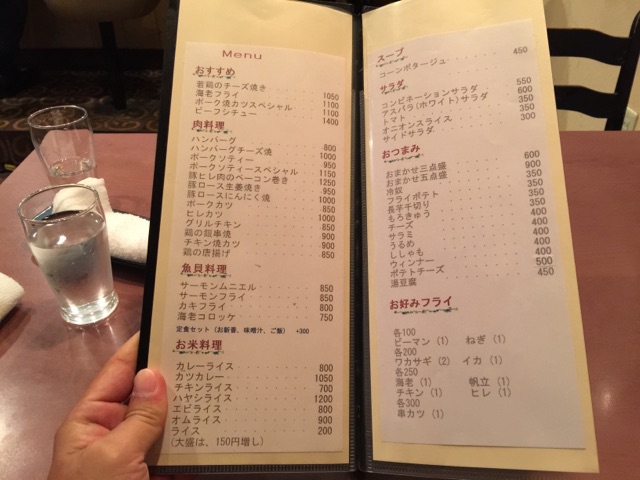 Menu
おすすめ
若鶏のチーズ焼き 1050
海老フライ 1100
ポーク焼カツスペシャル 1100
ビーフシチュー 1400
肉料理
ハンバーグ 800
ハンバーグチーズ焼 1000
ポークソティー 950
ポークソティースペシャル 1150
豚ヒレ肉のベーコン巻き 1250
豚ロース生姜焼き 950
豚ロースにんにく焼 1000
ポークカツ 850
ヒレカツ 1000
グリルチキン 850
鶏の串焼 900
チキン焼カツ 900
鶏の唐揚げ 850
魚貝料理
サーモンムニエル 850
サーモンフライ 850
カキフライ 800
海老コロッケ 750
定食セット (お新香、味噌汁、ご飯) +300
お米料理
カレーライス 800
カツカレー 1050
チキンライス 700
ハヤシライス 1200
エビライス 800
オムライス 900
ライス 200
(大盛は、150円増し)
スープ
コーンポタージュ 450
サラダ
コンビネーションサラダ 550
アスパラ(ホワイト)サラダ 600
トマト 350
オニオンスライス 350
サイドサラダ 300
おつまみ
おまかせ三点盛 600
おまかせ五点盛 900
冷奴 350
フライポテト 350
長芋千切り 350
もろきゅう 350
チーズ 400
サラミ 400
うるめ 400
ししゃも 400
ウィンナー 400
ポテトチーズ 500
湯豆腐 450
お好みフライ
各100
ピーマン (1) ねぎ (1)
各200
ワカサギ (2) イカ (1)
各250
海老 (1) 帆立 (1)
チキン (1) ヒレ (1)
各300
串カツ (1)